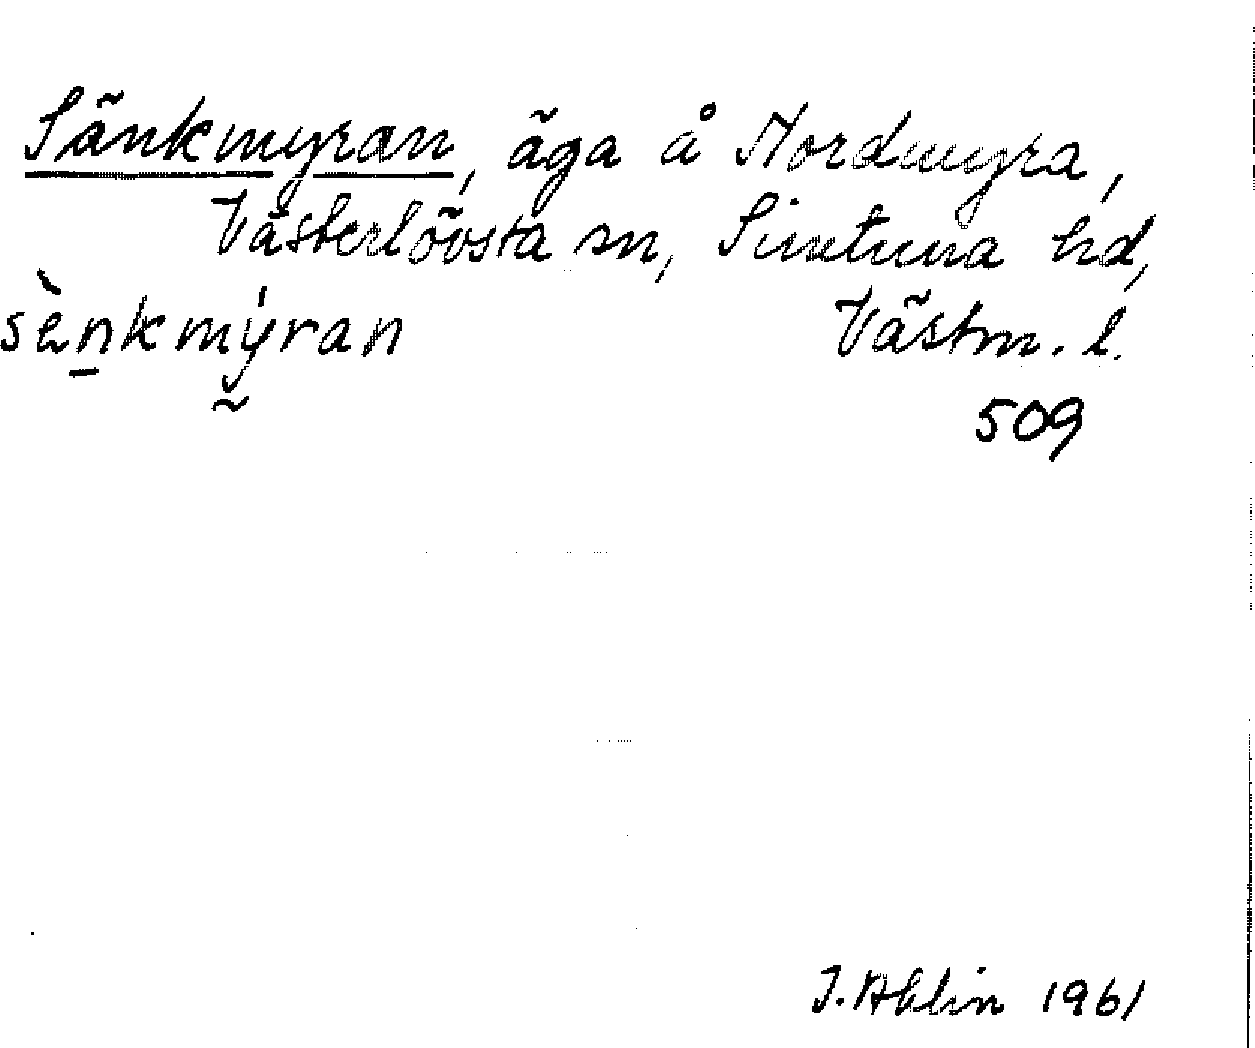 Sänkmyran, äga å Nordmyra,
Västerlövsta sn, Simtuna hd,
sènkmýran Västm. l.
509
I. Ahlin 1961